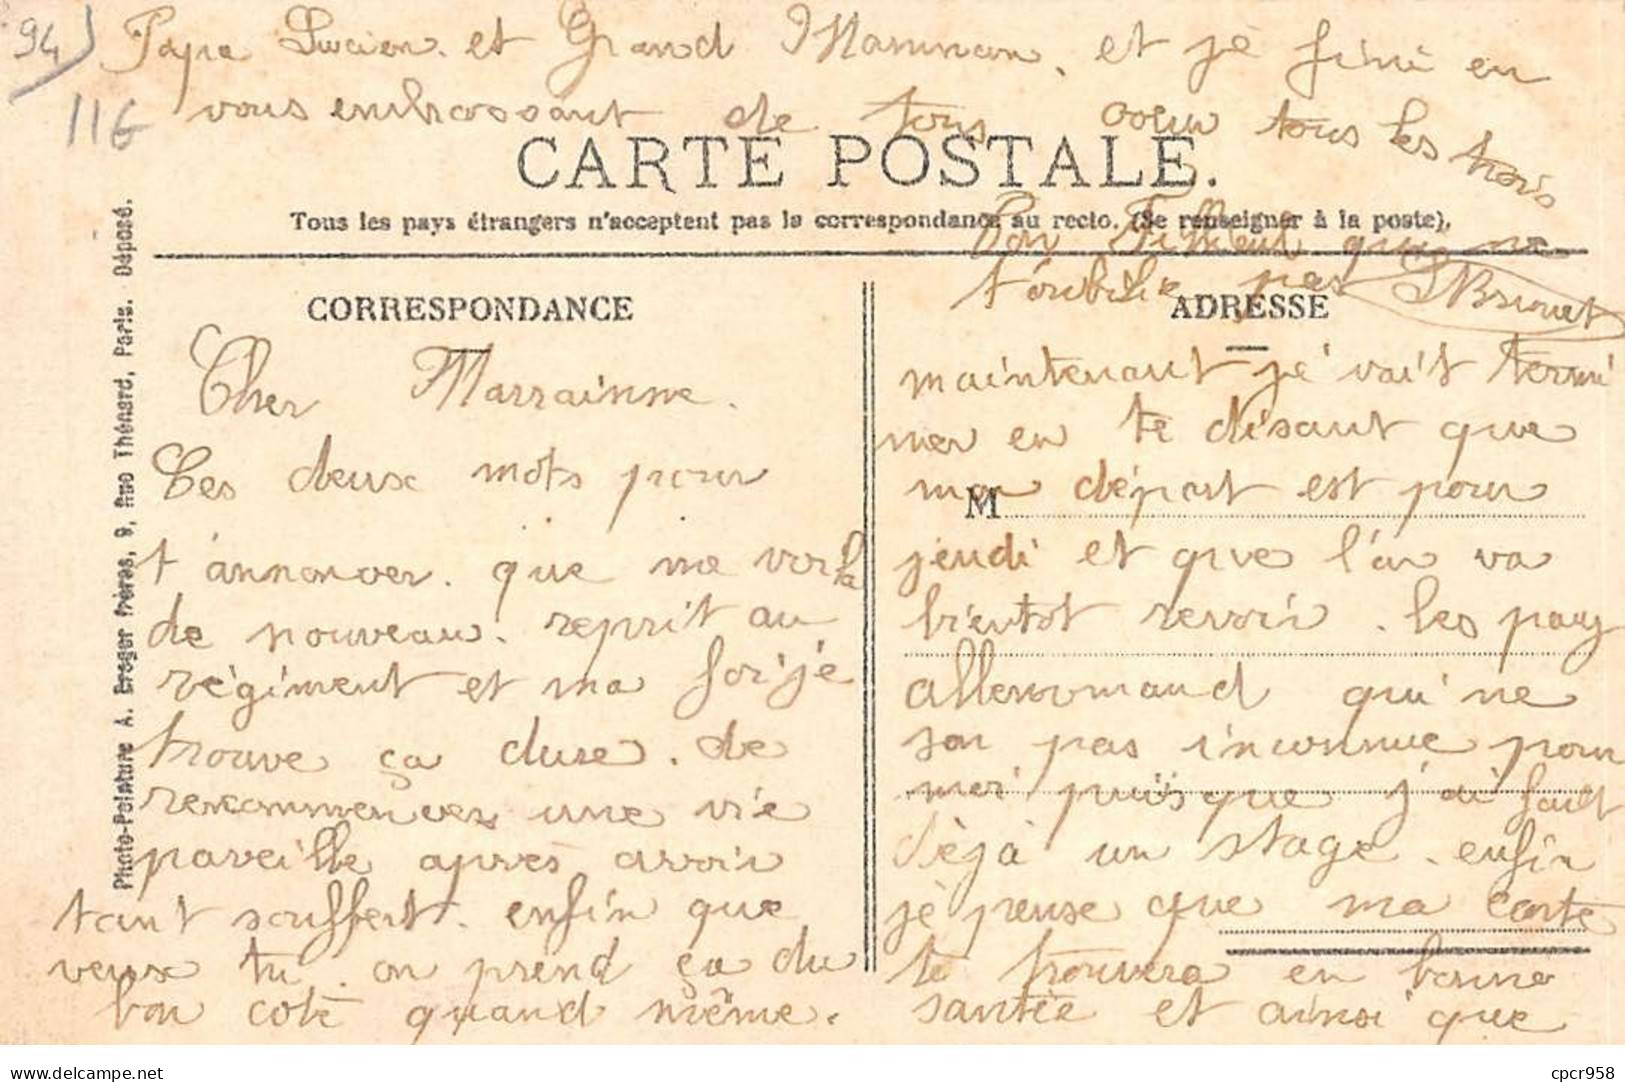 Cher Marrainne.
Ces deux mots pour
t'annoncer. que me voila
de nouveau. reprit au
régiment et ma foi je
trouve ça dure. de
recommencer une vie
pareille après avoir
tant souffert. enfin que
veux tu. on prend ça du
bon coté quand même.
maintenant je vait termi
ner en te disant que
mon départ est pour
jeudi et que l'on va
bientot revoir. les pay
allemand qui ne
son pas inconnue pour
moi puisque j'ai fait
dèjà un stage. enfin
je pense que ma carte
te trouvera en bonne
santée et ainsi que
Papa Lucien. et Grand Maman. et je fini en
vous embrassant de tous coeur tous les trois
Ton Filleul qui ne
t'oublie pas
LBrunet
94) 116
CARTE POSTALE.
Tous les pays étrangers n'acceptent pas la correspondance au recto. (Se renseigner à la poste).
CORRESPONDANCE
ADRESSE
M
Photo-Peinture A. Breger frères, 9, Rue Thénard, Paris. Déposé.
delcampe.net
cpcr958